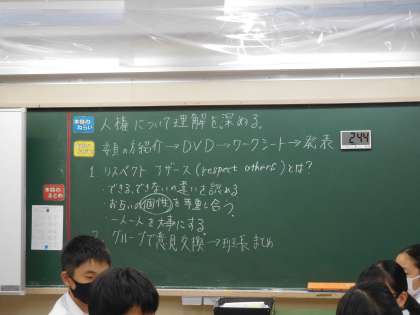 本時の
ねらい
人権について理解を深める。
紹介→DVD→ワークシート→発表
244
1 リスペクト アザース (respect others) とは?
・できる、できないの違いを認める
本時の
まとめ
・お互いの個性を尊重し合う。
・一人一人を大事にする。
グループで意見交換→班長まとめ